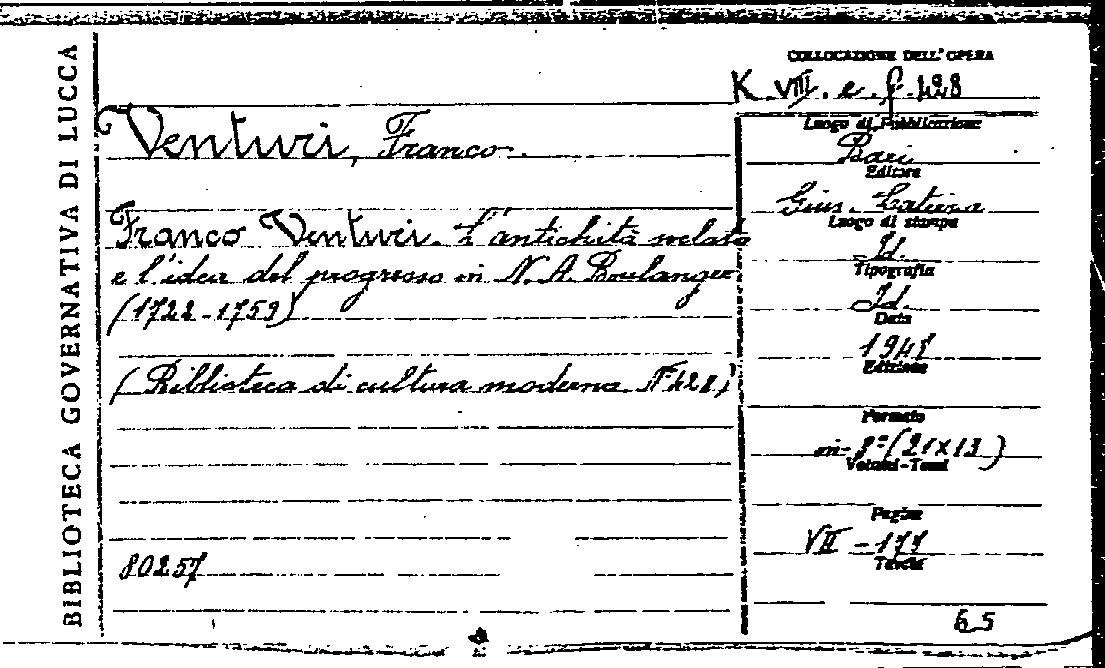 BIBLIOTECA GOVERNATIVA DI LUCCA
COLLOCAZIONE DELL'OPERA
K. VIII. e. f. 428
Venturi, Franco.
Franco Venturi. L'antichità svelata
e l'idea del progresso in N. A. Boulanger
(1722-1759)
(Biblioteca di cultura moderna N° 428)
80257
Luogo di Pubblicazione
Bari
Editore
Gius. Laterza
Luogo di stampa
Id.
Tipografia
Id.
Data
1947
Edizione
Formato
in-8° (21x13)
Volumi-Tomi
Pagine
VII - 177
Tavole
65